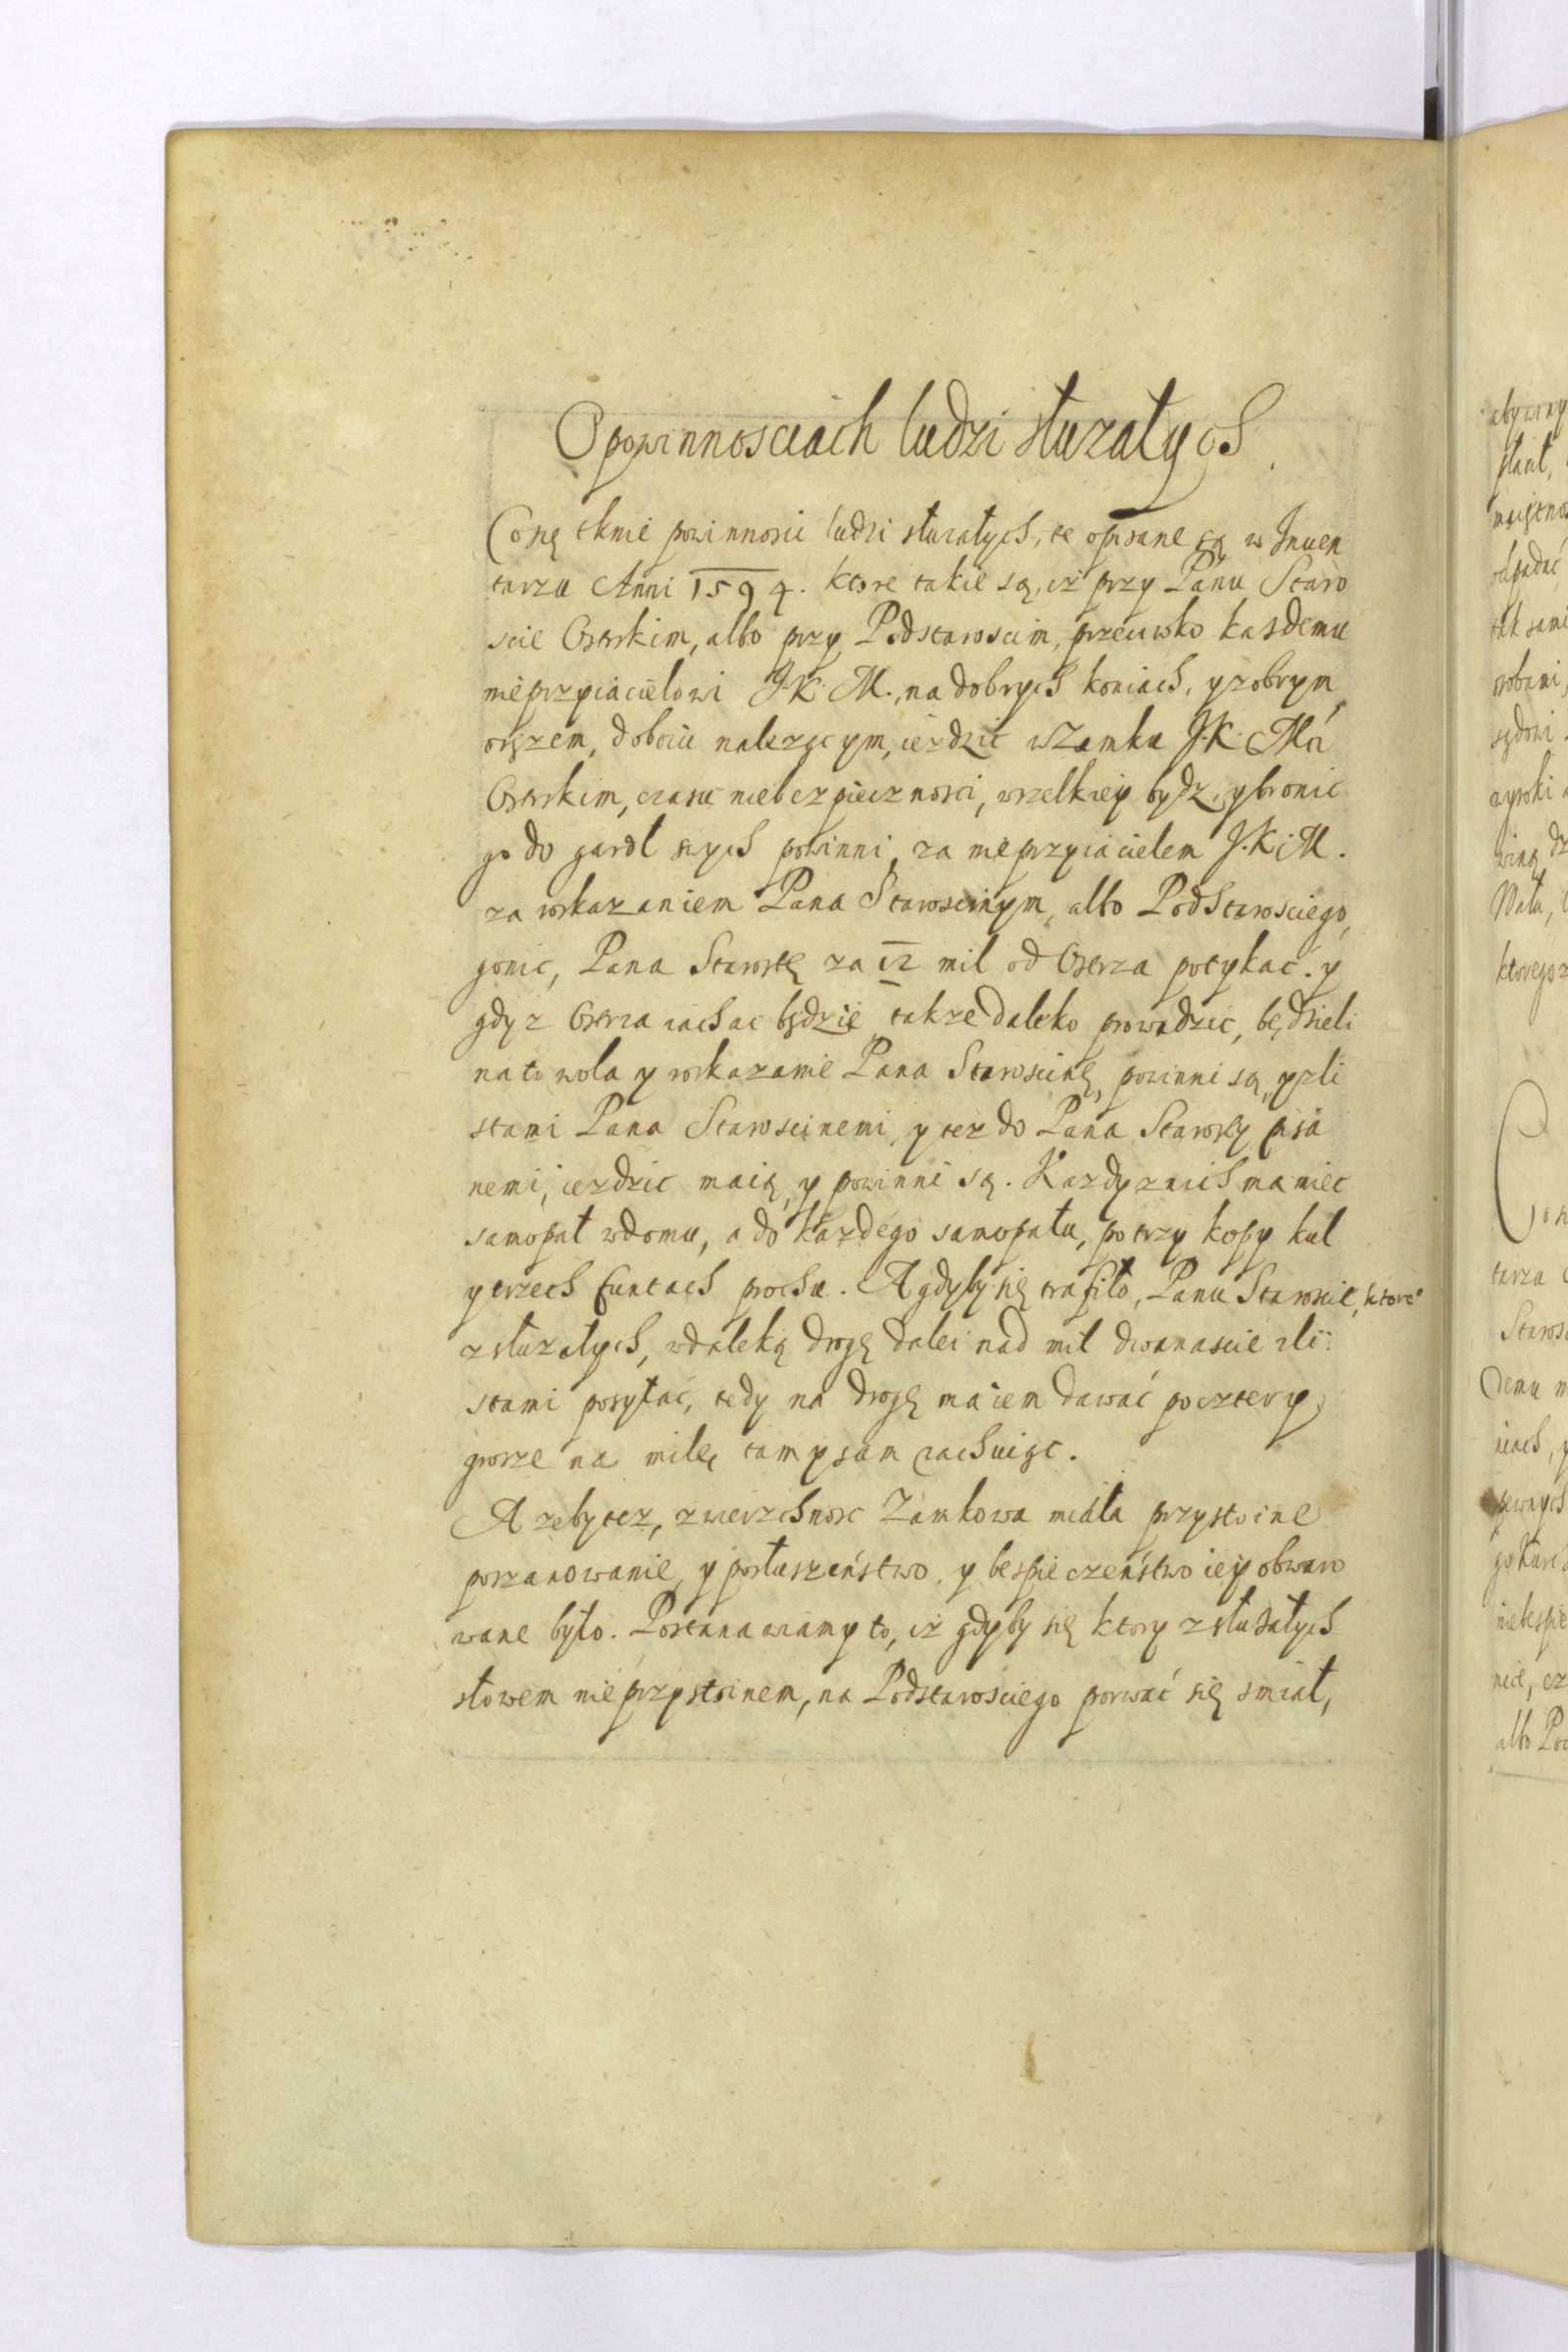 O powinnosciach ludzi służałych
Co się tknie powinności ludzi służałych, te opisane są w Inuen
tarzu Anni 1594. ktore takie są, iż przy Panu Staro
scie Osterskim, albo przy Podstarościm, przeciwko każdemu
nieprzyiacielowi J.K.M., na dobrych koniach, y zobrym
orężem, dobociu należącym, ieździć w Zamku J.K. Mći
Osterskim, czasu niebezpieczności, wszelkiey bydz, y bronić
go do gardł swych powinni, za nieprzyiacielem J.K.M.
za roskazaniem Pana Starościnym, albo PodStarosciego,
gonić, Pana Starostę za 12 mil od Ostrza potykać. y
gdy z Ostrza iachac będzie także daleko prowadzić, będzieli
na to wola y roskazanie Pana Starościne, powinni są, y zli
stami Pana Starościnemi, y też do Pana Starosty pisa
nemi, ieździć maią, y powinni są. Każdy z nich ma mieć
samopał w domu, a do każdego samopału, po trzy kopy kul
y trzech funtach prochu. A gdyby się trafiło, Panu Staroscie, ktore°
z służałych, w daleką drogę daley nad mil dwanascie zli:
stami posyłać, tedy na drogę ma iem dawać po cztery
grosze na milę, tam y sam rachuiąc.
A żeby też, zwierzchność Zamkowa miała przystoine
poszanowanie, y posłuszeństwo, y bespieczeństwo iey obwaro
wane było. Postanawiamy to, iż gdyby się ktory z służałych
słowem nieprzystoinem, na Podstarosciego porwać się smiał,